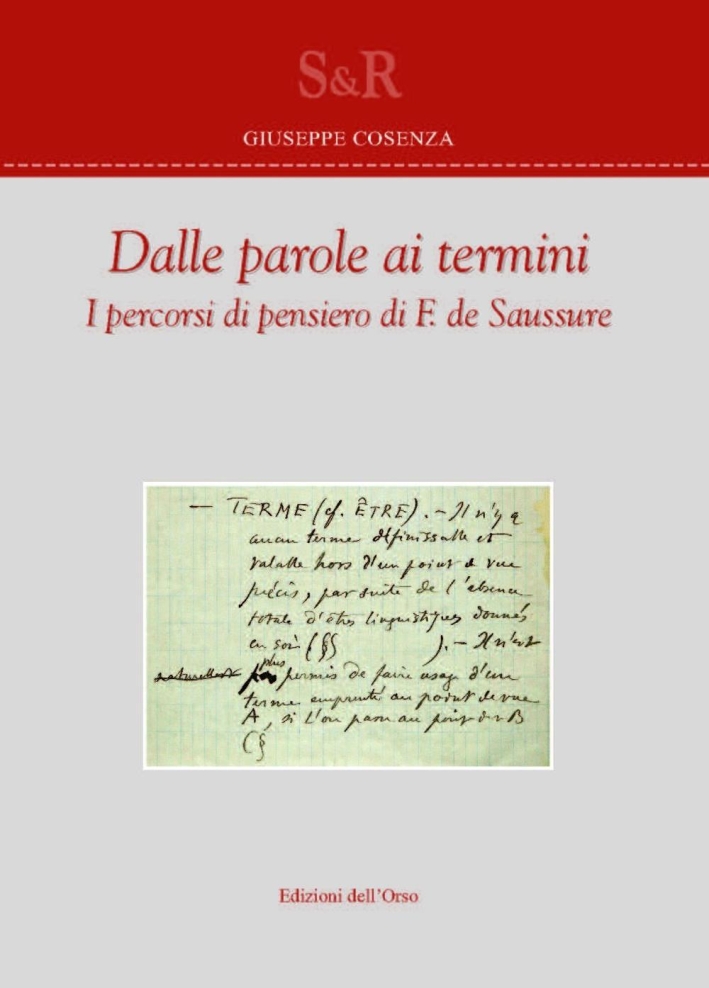 S&R
GIUSEPPE COSENZA
Dalle parole ai termini
I percorsi di pensiero di F. de Saussure
— TERME (cf. ÊTRE). – Il n'y a
aucun terme définissable et
valable hors d'un point de vue
précis, par suite de l'absence
totale d'êtres linguistiques donnés
en soi (§§ ). – Il n'est
naturellement plus permis de faire usage d'un
terme emprunté au point de vue
A, si l'on passe au point de v B
(§
Edizioni dell'Orso